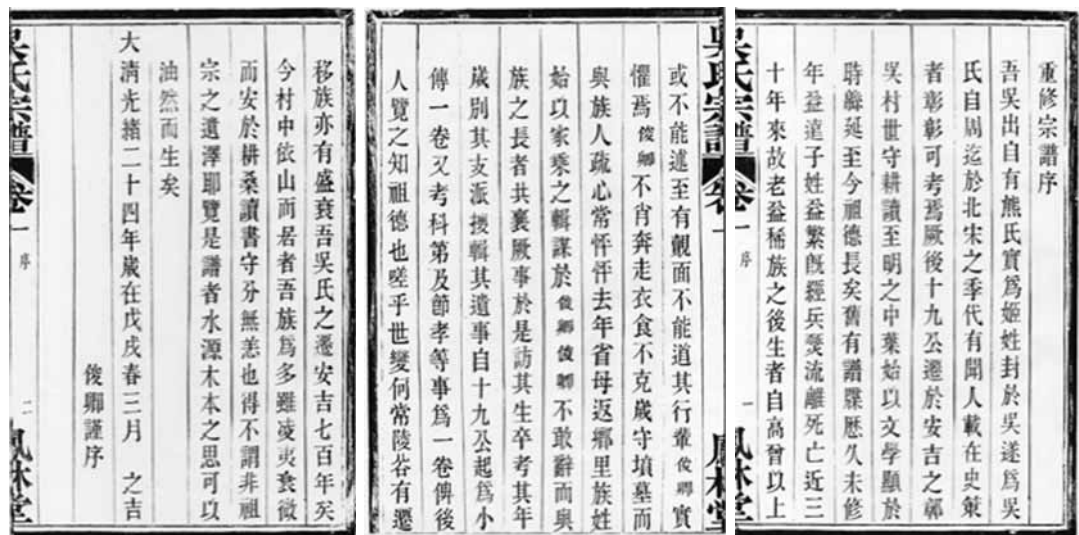 重修宗譜序
吾吳出自有熊氏實爲姬姓封於吳遂爲吳
氏自周迄於北宋之季代有聞人載在史策
者彰彰可考焉厥後十九公遷於安吉之鄣
吳村世守耕讀至明之中葉始以文學顯於
時緜延至今祖德長矣舊有譜牒歷久未修
年益遠子姓益繁旣經兵燹流離死亡近三
十年來故老益稀族之後生者自高曾以上
吳氏宗譜 卷一 序 一 鳳林堂
或不能述至有覿面不能道其行輩俊卿實
懼焉俊卿不肖奔走衣食不克歲守墳墓而
與族人疏心常忓忓去年省母返鄉里族姓
始以家乘之輯謀於俊卿俊卿不敢辭而與
族之長者共襄厥事於是訪其生卒考其年
歲別其支派援輯其遺事自十九公起爲小
傳一卷又考科第及節孝等事爲一卷俾後
人覽之知祖德也嗟乎世變何常陵谷有遷
吳氏宗譜 卷一 鳳林堂
移族亦有盛衰吾吳氏之遷安吉七百年矣
今村中依山而居者吾族爲多雖凌夷衰微
而安於耕桑讀書守分無恙也得不謂非祖
宗之遺澤耶覽是譜者水源木本之思可以
油然而生矣
大清光緒二十四年歲在戊戌春三月 之吉
俊卿謹序
吳氏宗譜 卷一 序 二 鳳林堂